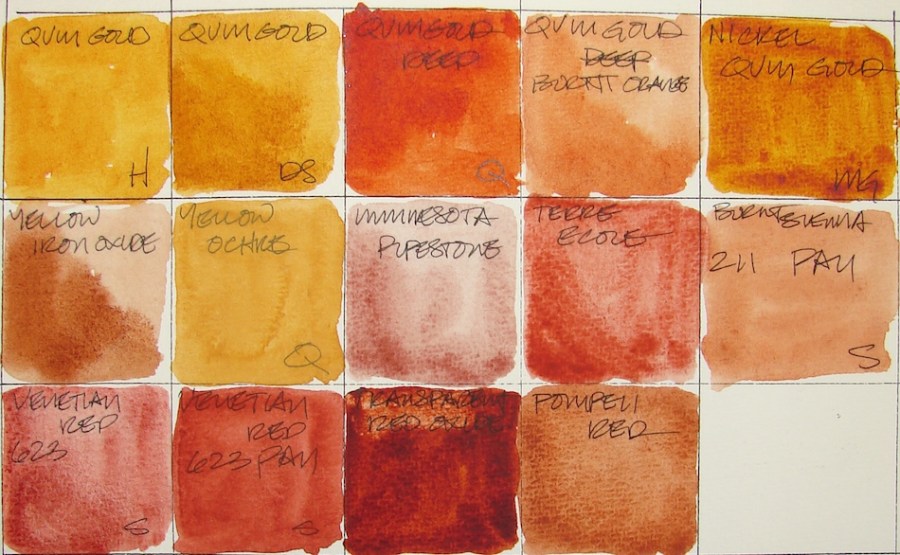 QUIN GOLD
H
QUIN GOLD
DS
QUIN GOLD
DEEP
Q
QUIN GOLD
DEEP
BURNT ORANGE
NICKEL
QUIN GOLD
MG
YELLOW
IRON OXIDE
YELLOW
OCHRE
Q
MINNESOTA
PIPESTONE
TERRE
ECOLE
BURNT SIENNA
211 PAN
S
VENETIAN
RED
623
S
VENETIAN
RED
623 PAN
S
TRANSPARENT
RED OXIDE
POMPEII
RED